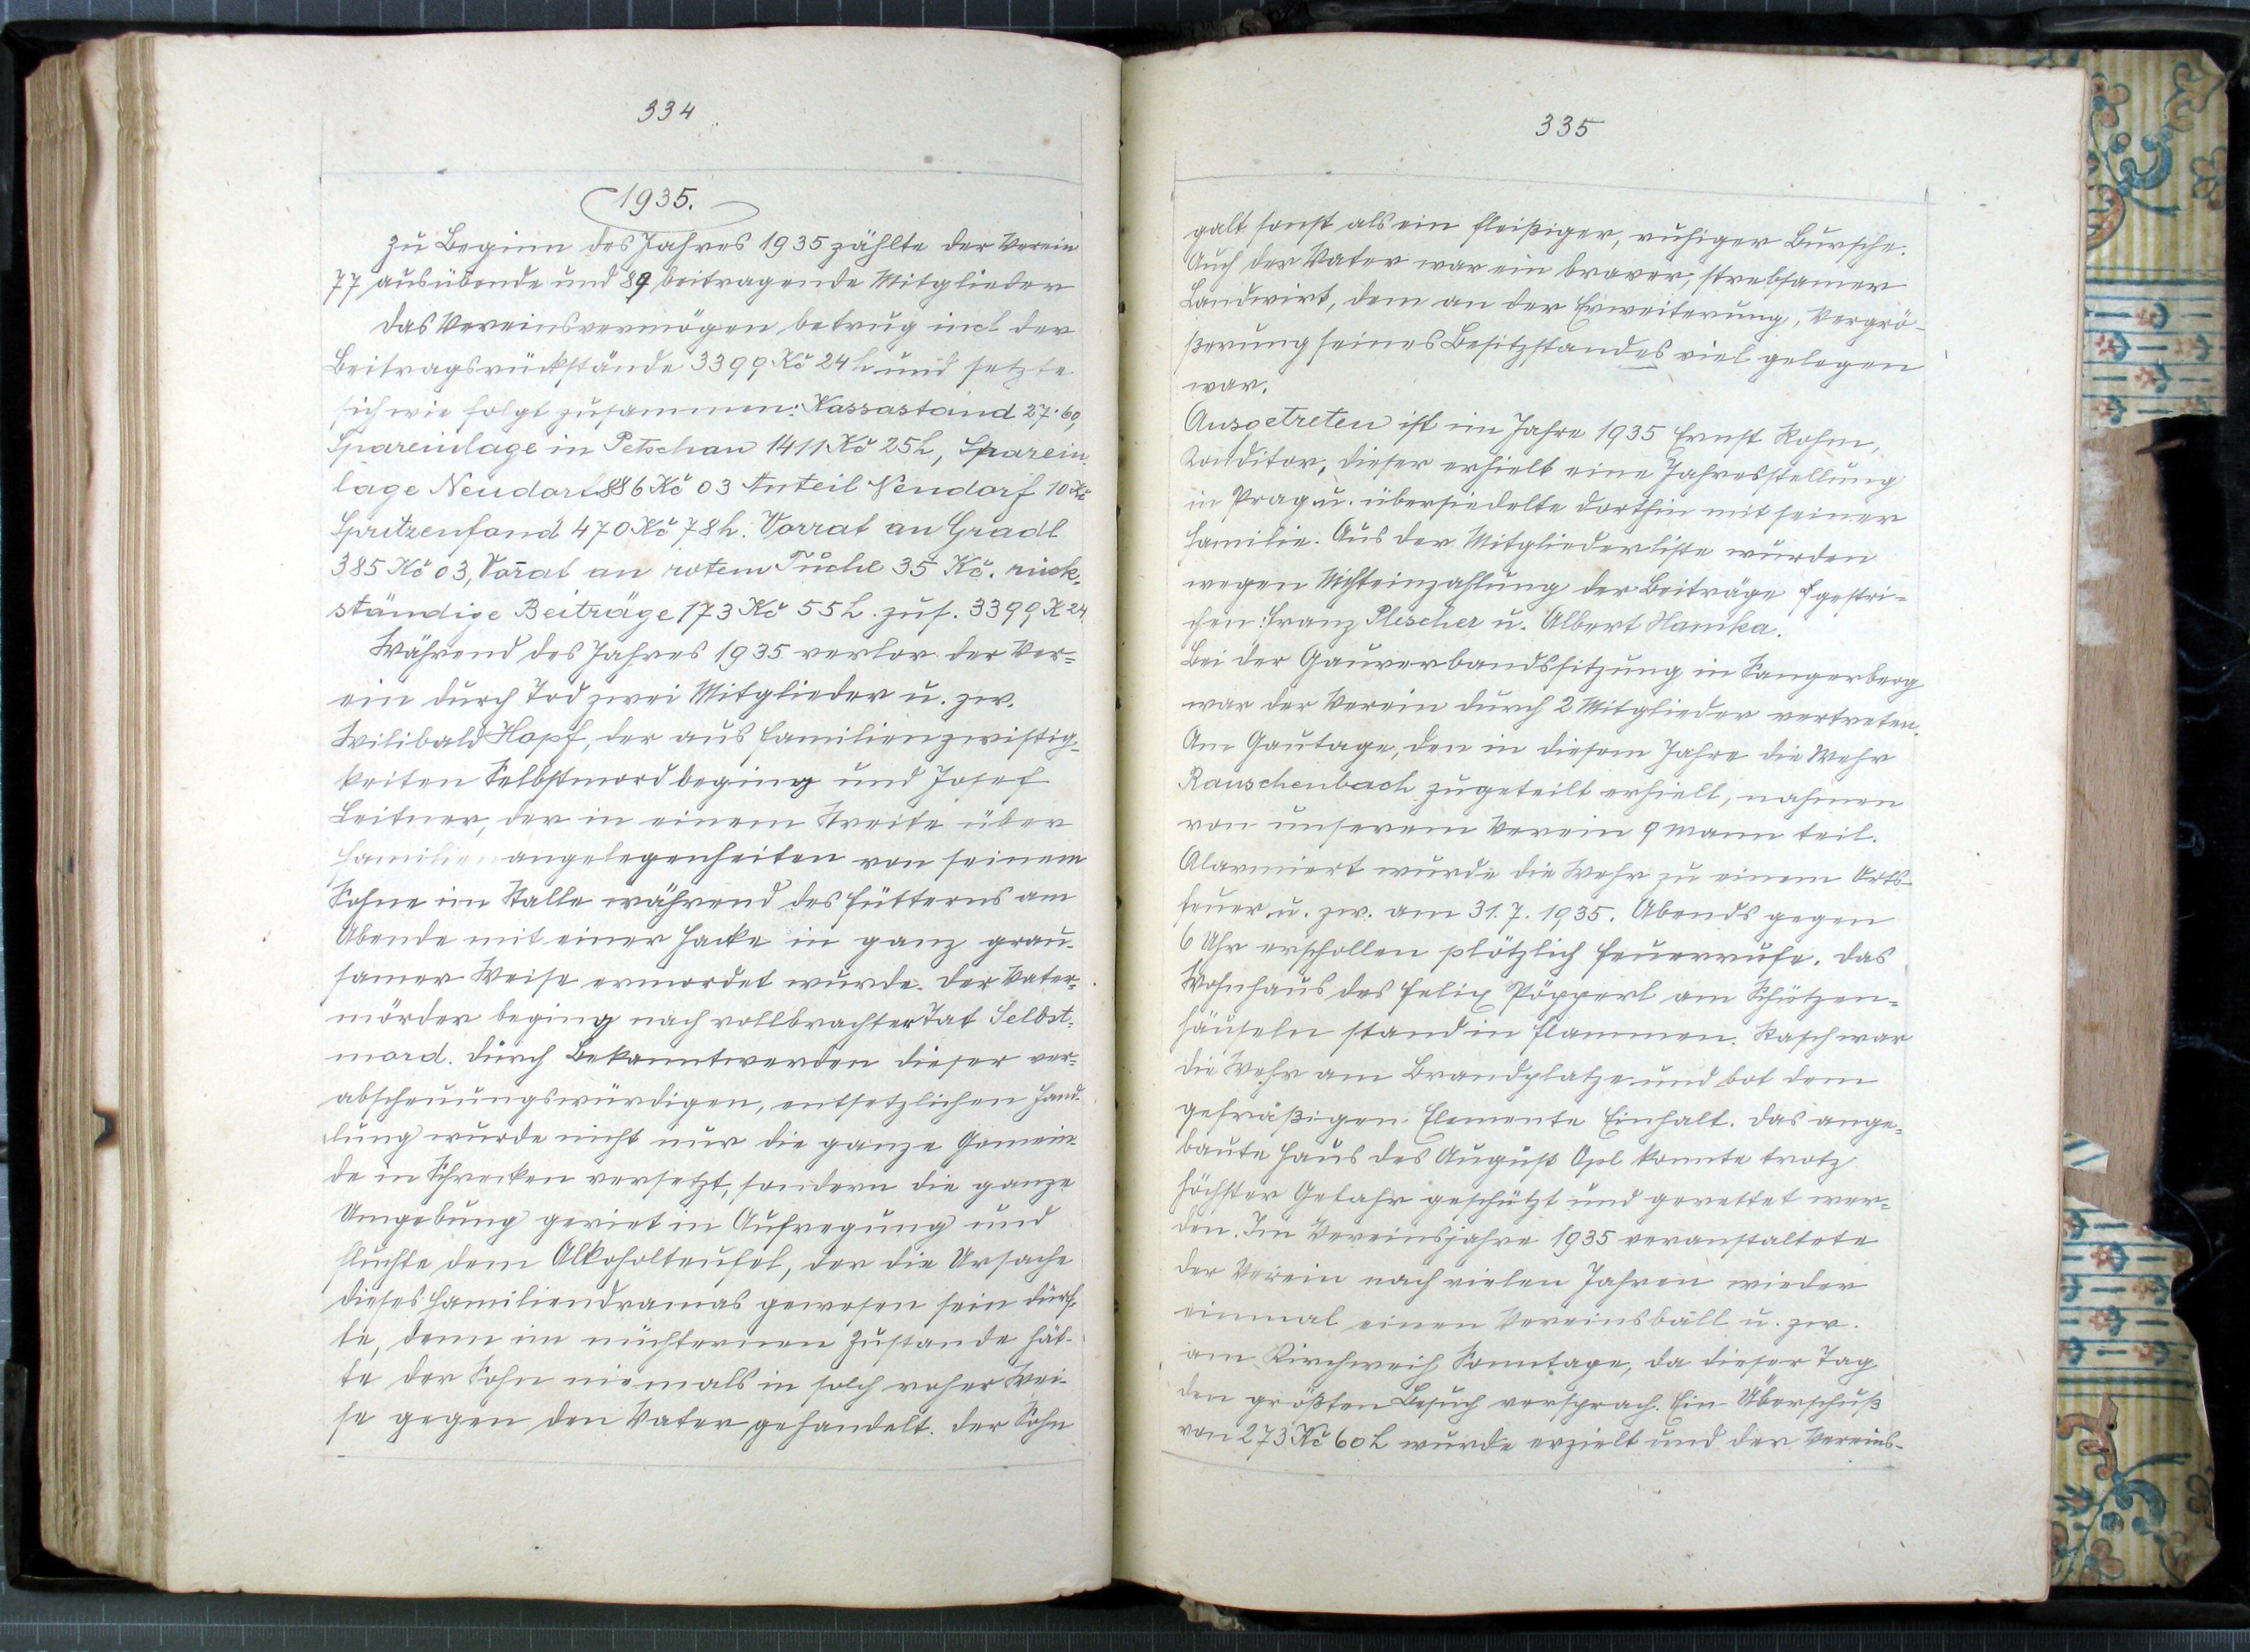 334
1935.
Zu Beginn des Jahres 1935 zählte der Verein
77 ausübende und 89 beitragende Mitglieder
Das Vereinsvermögen betrug incl der
Beitragsrückstände 3399 Kč 24 h und setzte
sich wie folgt zusammen: Kassastand 27·60,
Spareinlage in Petschau 1411 Kč 25 h, Sparein-
lage Neudorf 886 Kč 03 Anteil Neudorf 10 Kč
Spritzenfond 470 Kč 78 h. Vorrat an Gradl
385 Kč 03, Vorat an rotem Tuche 35 Kč. rück-
ständige Beiträge 173 Kč 55 h. zus. 3399 K 24.
Während des Jahres 1935 verlor der Ver=
ein durch Tod zwei Mitglieder u. zw.
Wilibald Hopf, der aus Familienzwistig-
keiten Selbstmord beging und Josef
Leitner, der in einem Streite über
Familienangelegenheiten von seinem
Sohne im Stalle während des Fütterns am
Abende mit einer Hacke in ganz grau-
samer Weise ermordet wurde. Der Vater-
mörder beging nach vollbrachter Tat Selbst-
mord. Durch Bekanntwerden dieser ver-
abscheuungswürdigen, entsetzlichen Hand-
lung wurde nicht nur die ganze Gemein-
de in Schrecken versetzt, sondern die ganze
Umgebung geriet in Aufregung und
fluchte dem Alkoholteufel, der die Ursache
dieses Familiendramas gewesen sein dürf-
te, denn im nüchternen Zustande hät-
te der Sohn niemals in solch roher Wei-
se gegen den Vater gehandelt. Der Sohn
335
galt sonst als ein fleißiger, ruhiger Bursche.
Auch der Vater war ein braver, strebsamer
Landwirt, dem an der Erweiterung, Vergrö-
ßerung seines Besitzstandes viel gelegen
war.
Ausgetreten ist im Jahre 1935 Ernst Rohm,
Konditor, dieser erhielt eine Jahresstellung
in Prag u. übersiedelte dorthin mit seiner
Familie. Aus der Mitgliederliste wurden
wegen Nichteinzahlung der Beiträge gestri=
chen: Franz Plescher u. Albert Hanika.
Bei der Gauverbandssitzung in Sangerberg
war der Verein durch 2 Mitglieder vertreten.
Am Gautage, den in diesem Jahre die Wehr
Rauschenbach zugeteilt erhielt, nahmen
von unserem Verein 9 Mann teil.
Alarmiert wurde die Wehr zu einem Orts-
feuer u. zw. am 31. 7. 1935. Abends gegen
6 Uhr erschollen plötzlich Feuerrufe. Das
Wohnhaus des Felix Pöpperl am Schützen=
häuseln stand in Flammen. Rasch war
die Wehr am Brandplatze und bot dem
gefräßigen Elemente Einhalt. Das ange-
baute Haus des August Opl konnte trotz
höchster Gefahr geschützt und gerettet wer=
den. Im Vereinsjahre 1935 veranstaltete
der Verein nach vielen Jahren wieder
einmal einen Vereinsball u. zw.
am Kirchweih Sonntage, da dieser Tag
den größten Besuch versprach. Ein Überschuß
von 273 Kč 60 h wurde erzielt und der Vereins-